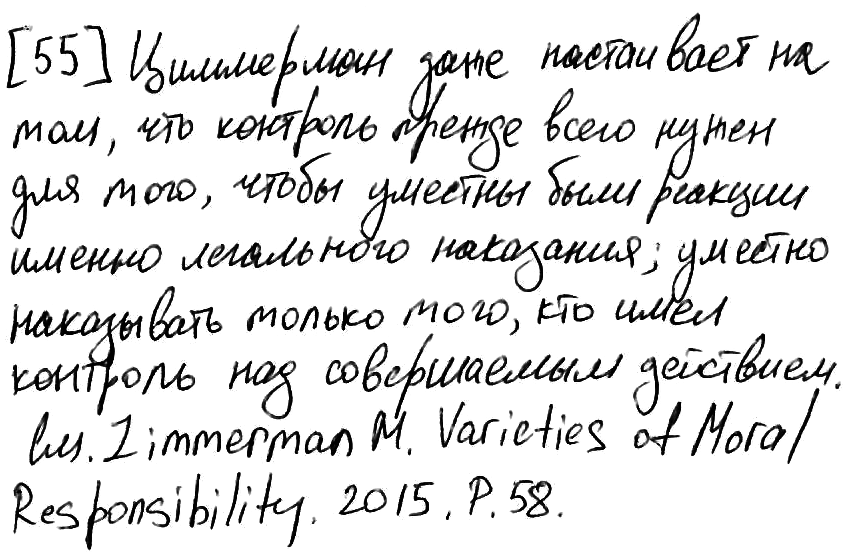 [55] Циммерман даже настаивает на
том, что контроль прежде всего нужен
для того, чтобы уместны были реакции
именно легального наказания; уместно
наказывать только того, кто имел
контроль над совершаемым действием.
См. Zimmerman M. Varieties of Moral
Responsibility. 2015. P. 58.